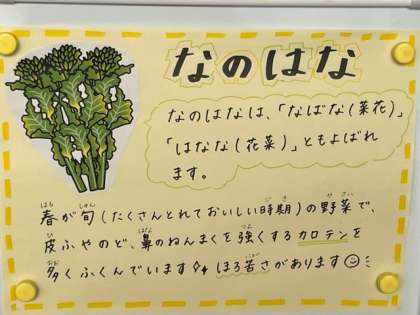 なのはな
なのはなは、「なばな(菜花)」
「はなな(花菜)」ともよばれ
ます。
はる しゅん じき やさい
春が旬(たくさんとれておいしい時期)の野菜で、
ひ はな つよ
皮ふやのど、鼻のねんまくを強くするカロテンを
おお
多くふくんでいます。ほろ苦さがあります